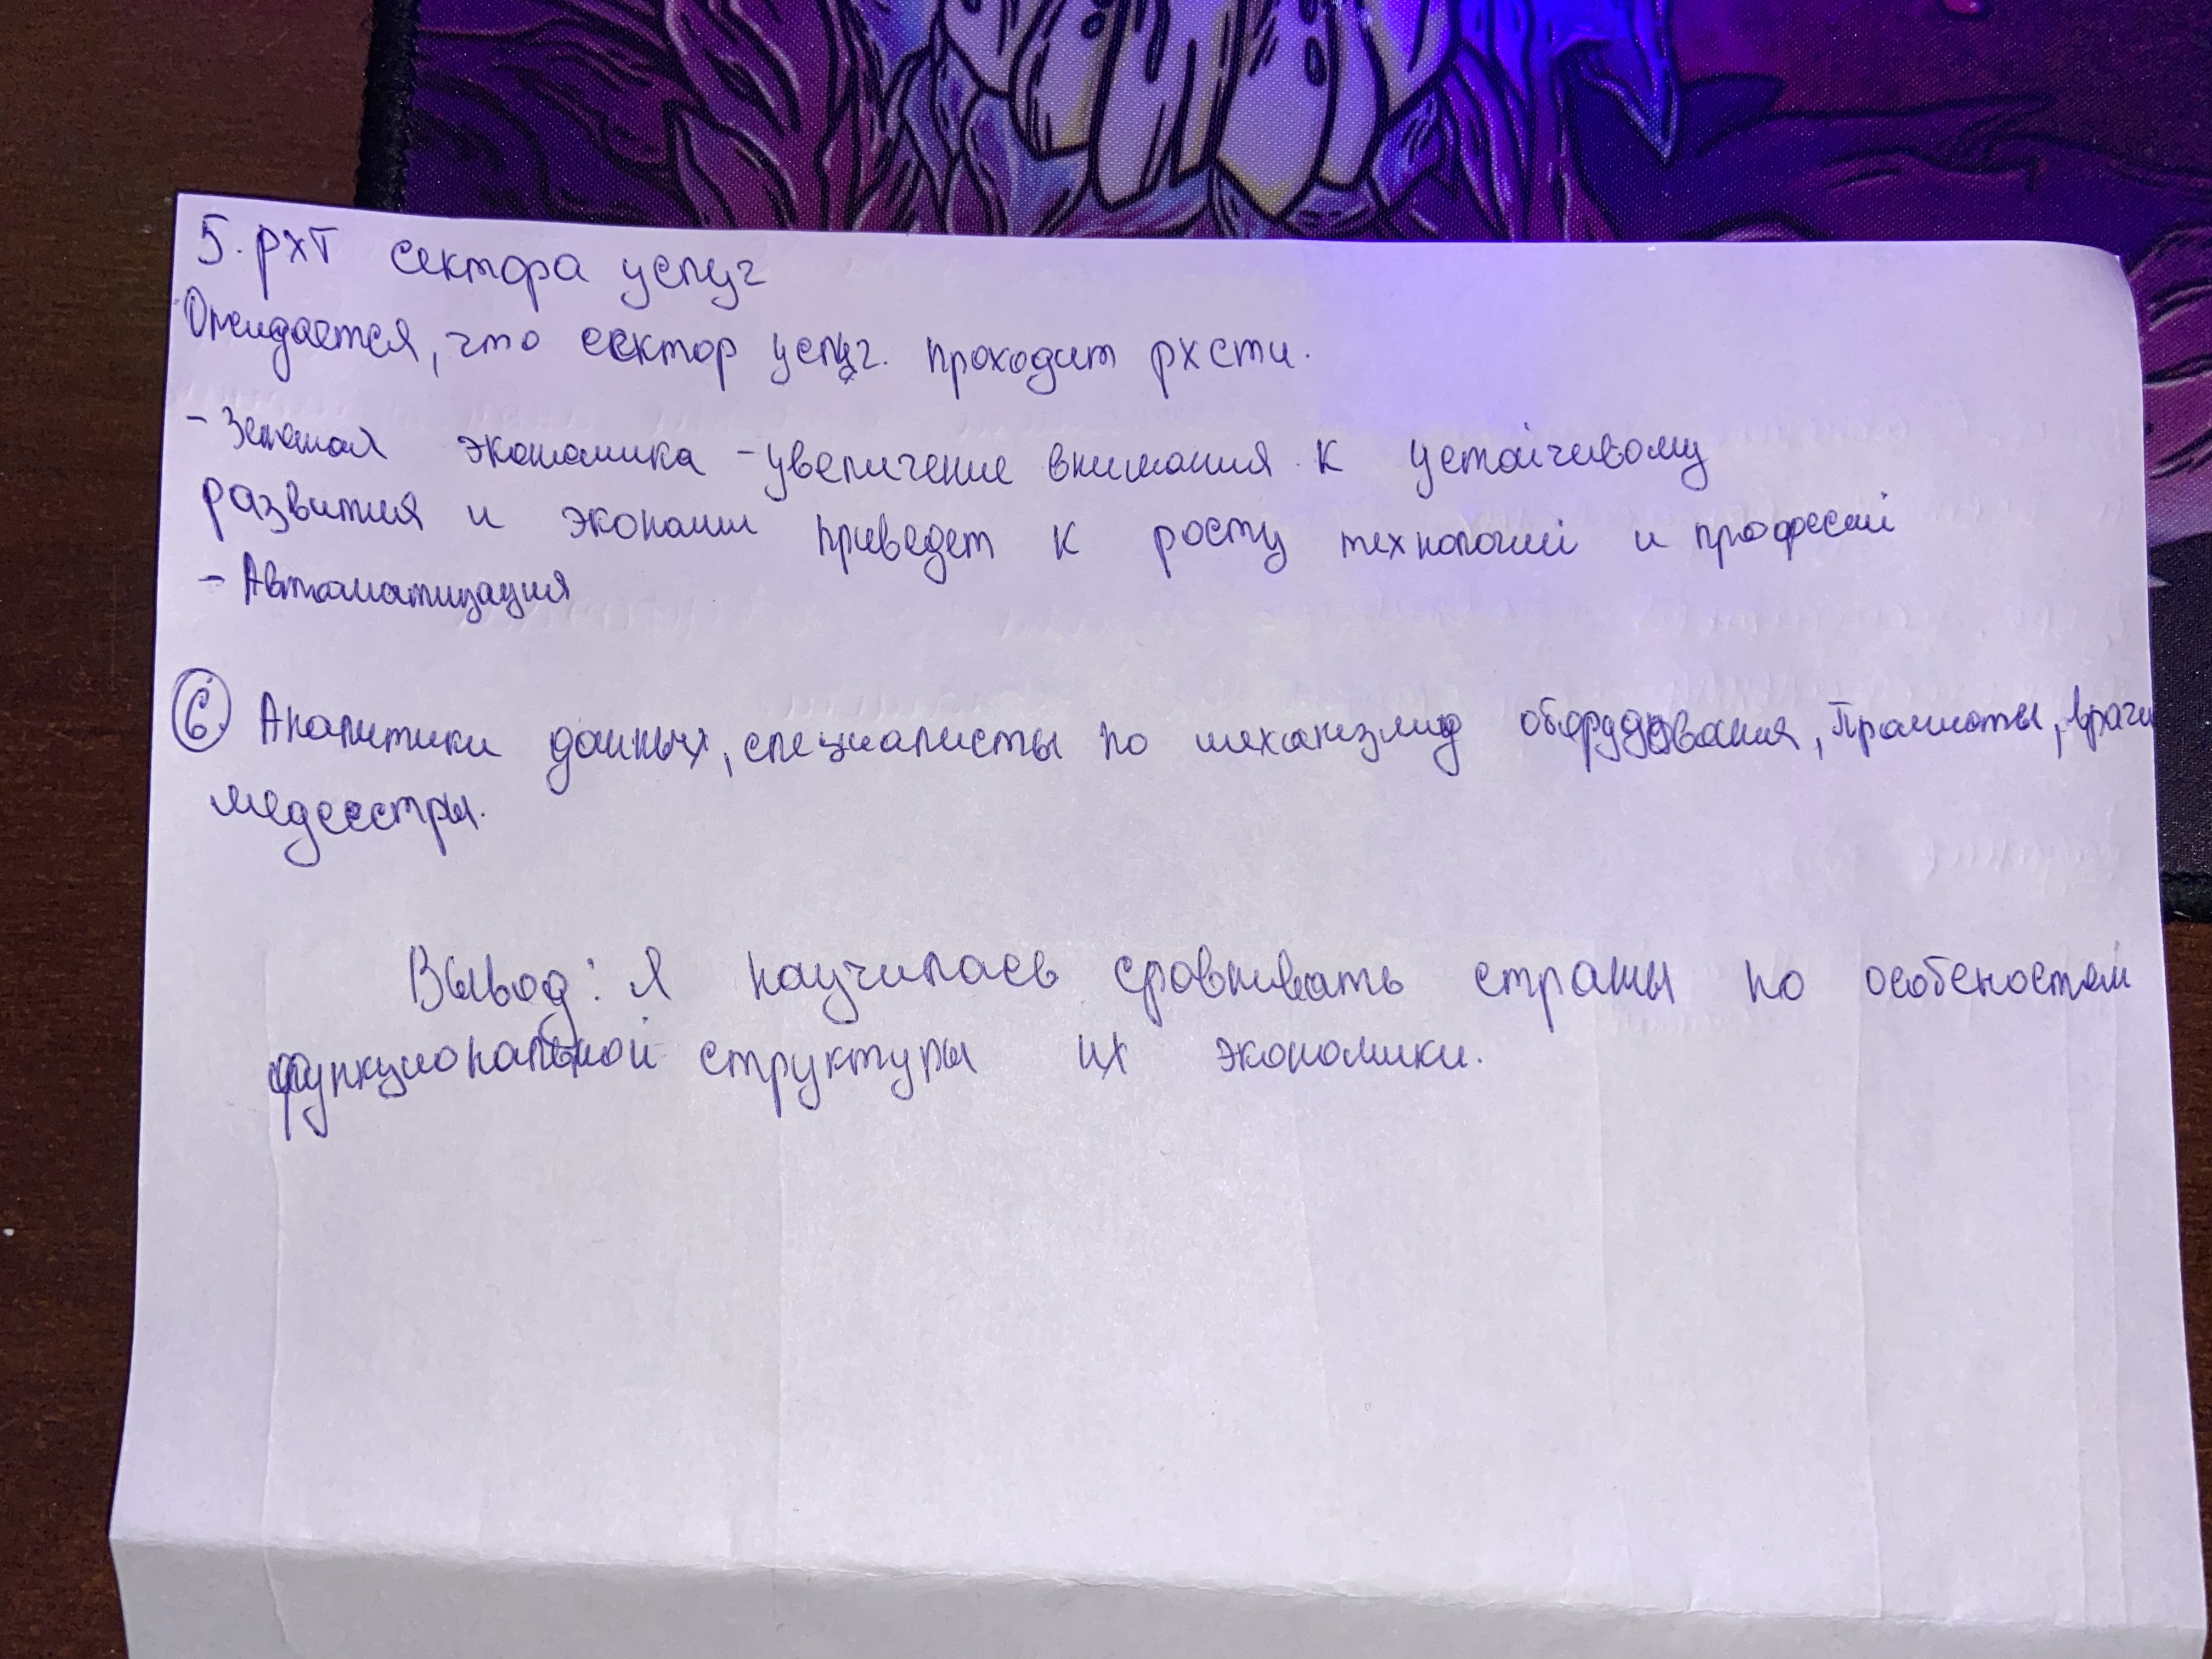 5. рхт сектора услуг
Ожидается, что сектор услуг. проходит рхсти.
- Зеленая экономика - увеличение внимания к устойчивому
развития и экономии приведет к росту технологий и професий
- Автоматизация
6 Аналитики данных, специалисты по оборудования, врачи
медсестры.
Вывод: Я научилась сравнивать страны по особеностем
функциональной структуры их экономики.